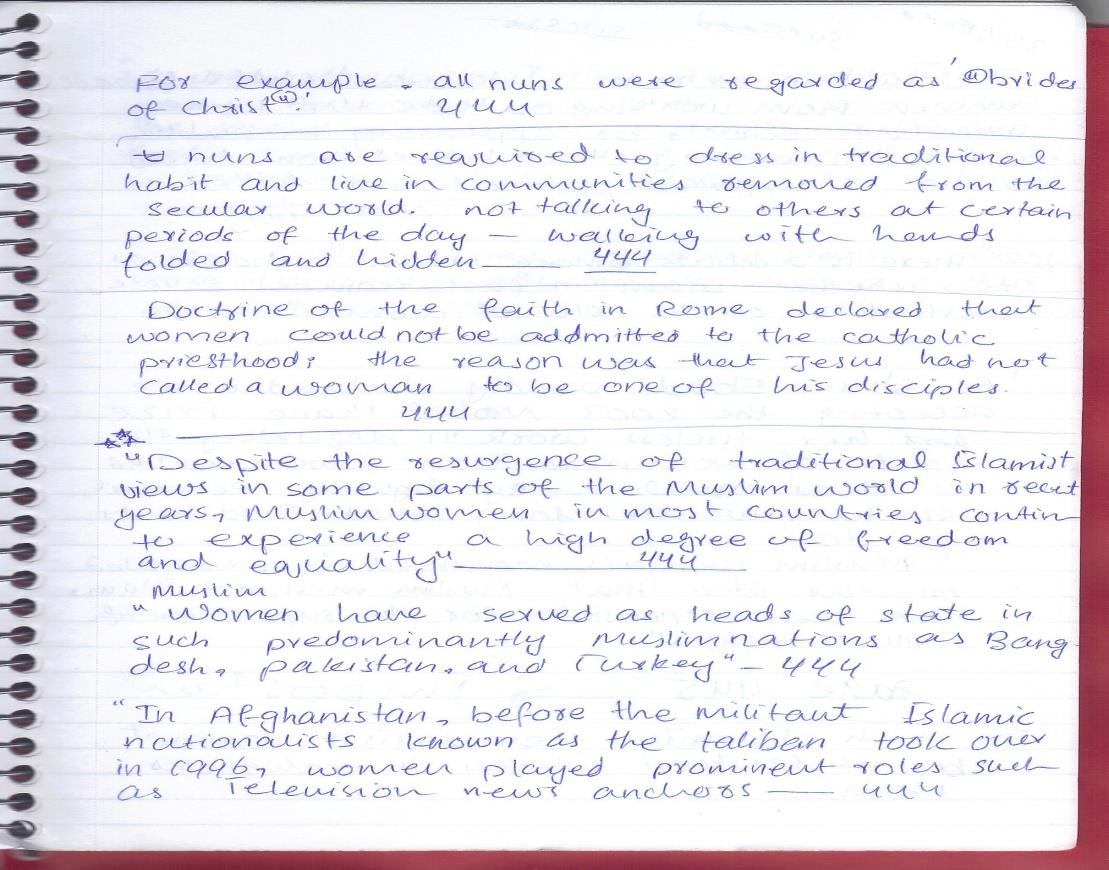 For example, all nuns were regarded as '@brides
of Christ@.' 444
nuns are required to dress in traditional
habit and live in communities removed from the
secular world. not talking to others at certain
periods of the day — walking with hands
folded and hidden — 444
Doctrine of the faith in Rome declared that
women could not be addmitted to the catholic
priesthood; the reason was that Jesus had not
called a woman to be one of his disciples.
444
"Despite the resurgence of traditional Islamist
views in some parts of the Muslim world in recent
years, Muslim women in most countries contin
to experience a high degree of freedom
and equality" — 444
Muslim
"Women have served as heads of state in
such predominantly Muslim nations as Bang
desh, pakistan, and Turkey" — 444
"In Afghanistan, before the militant Islamic
nationalists known as the taliban took over
in 1996, women played prominent roles such
as Television news anchors — 444